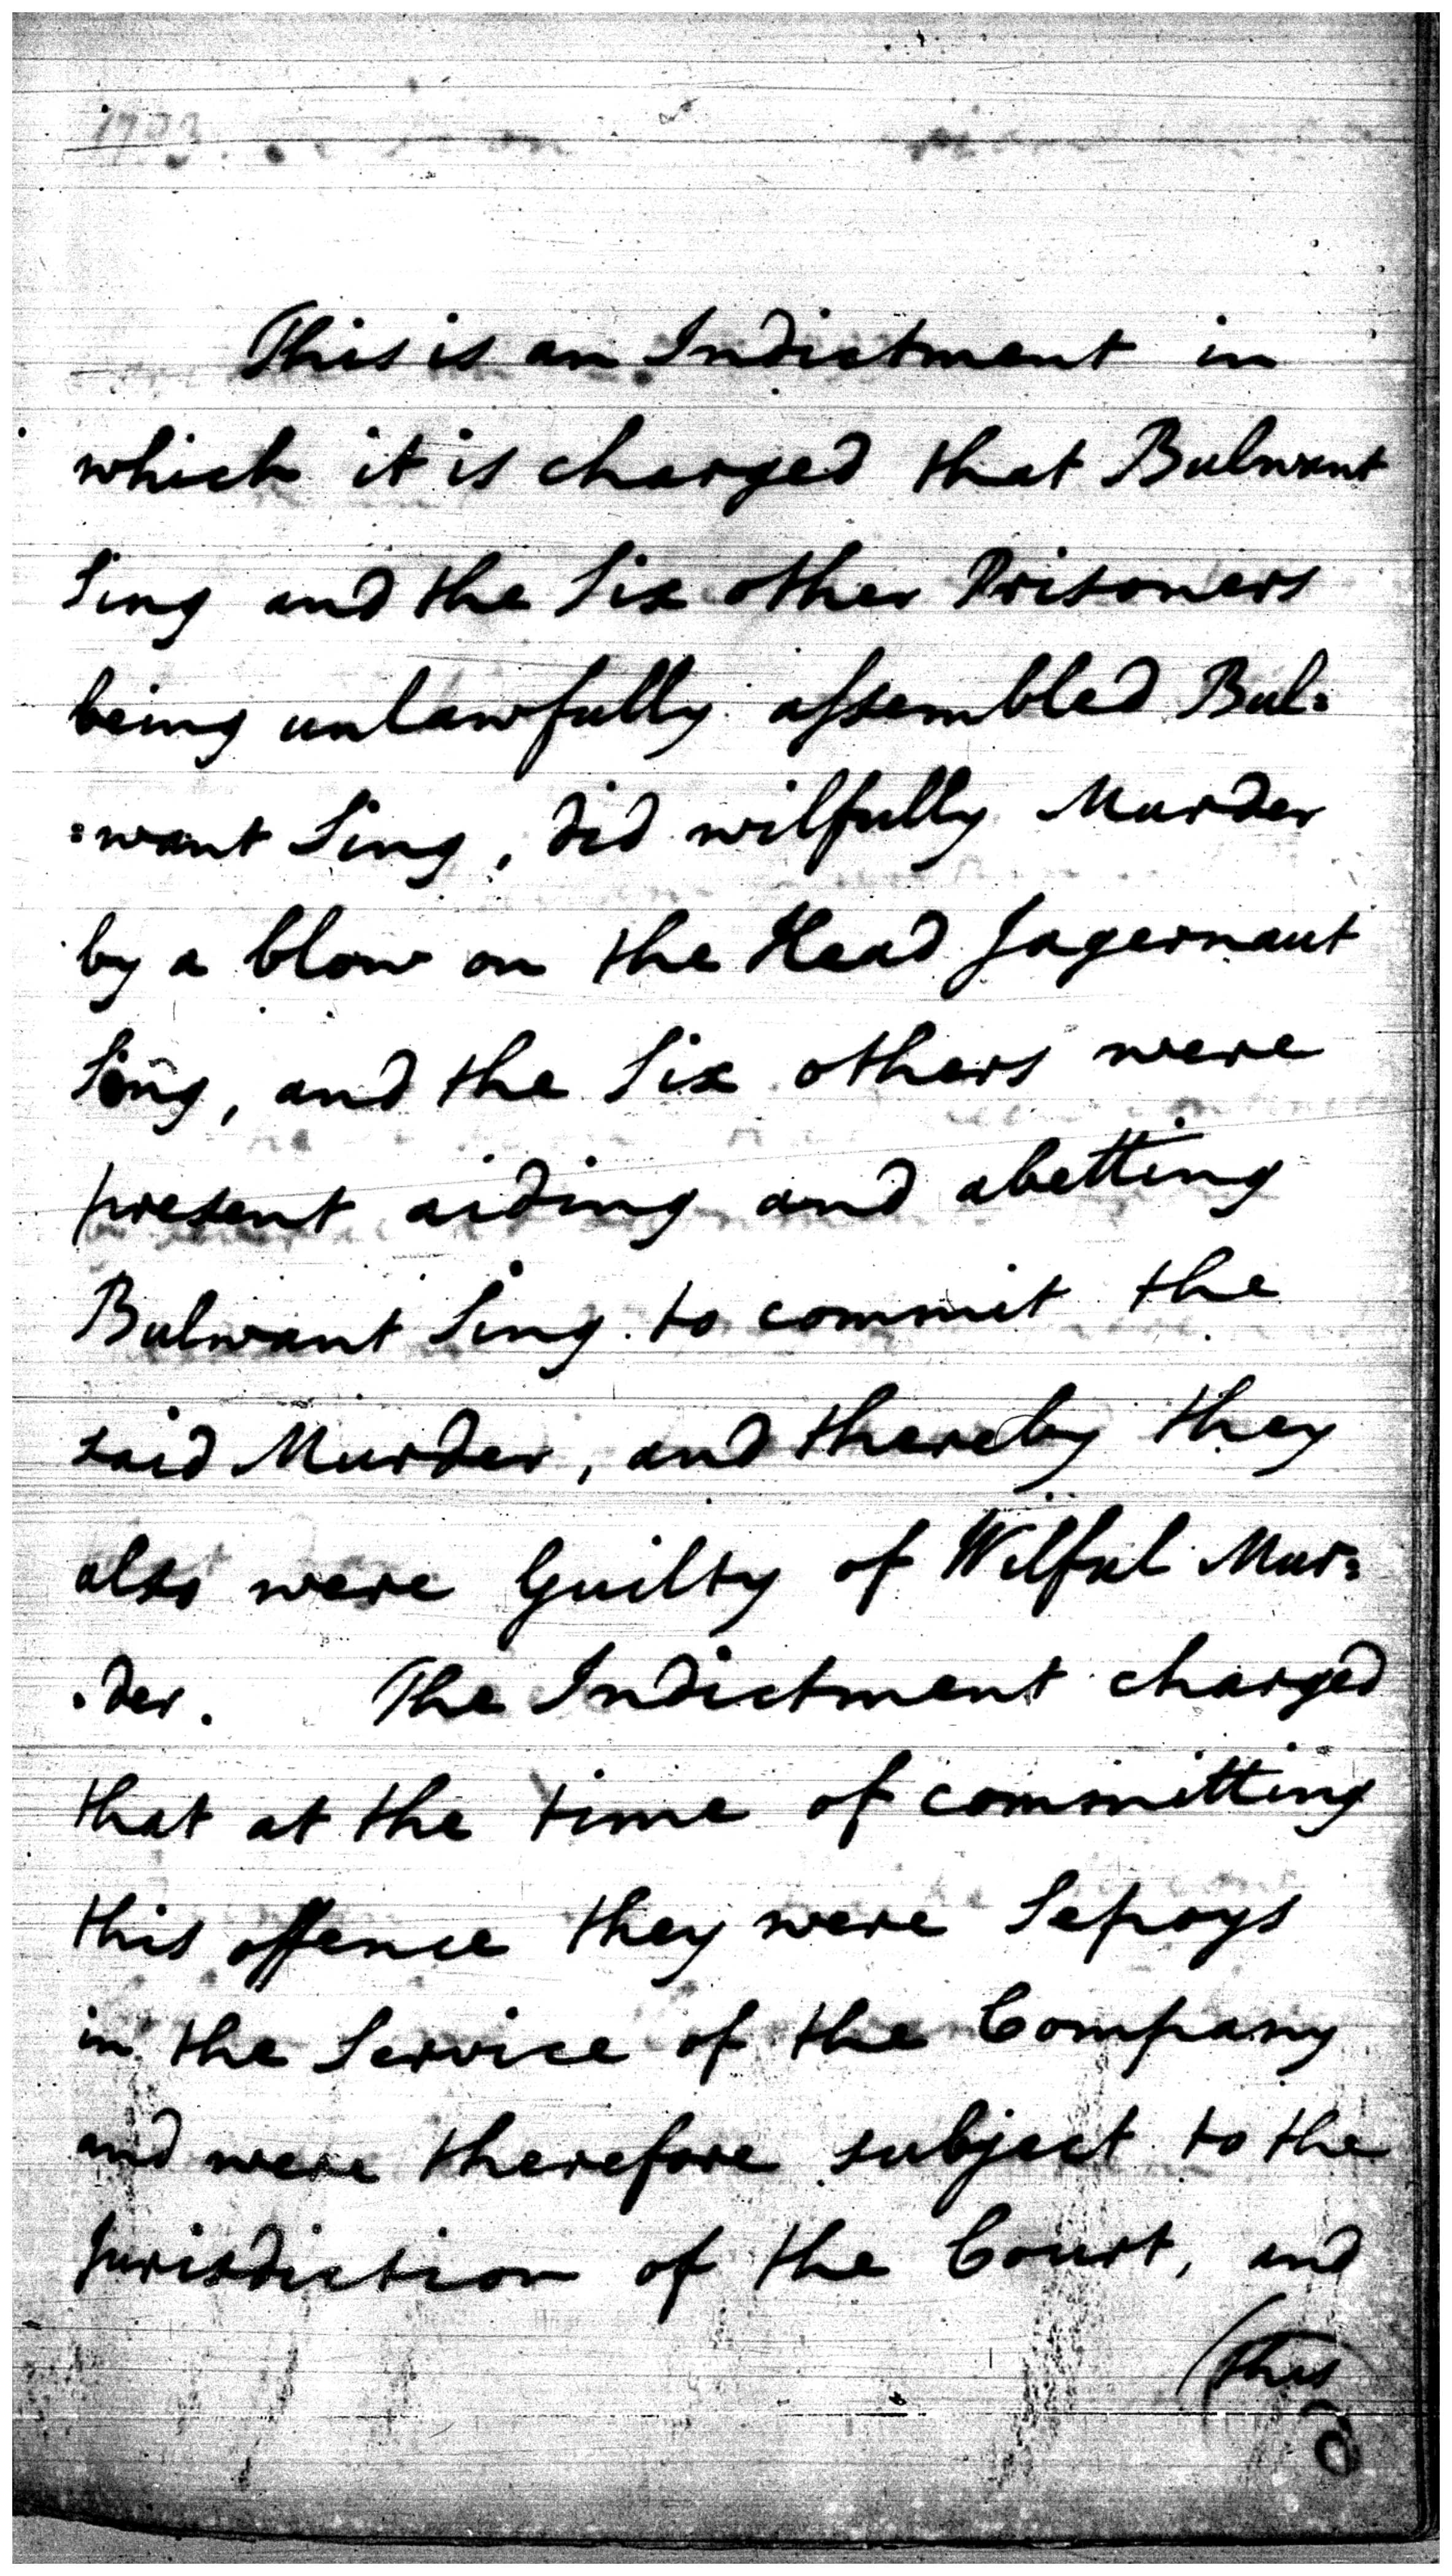 This is an Indictment in
which it is charged that Bulwant
Sing and the Six other Prisoners
being unlawfully assembled Bul=
=want Sing, did wilfully Murder
by a blow on the Head Jagernaut
Sing, and the Six others were
present aiding and abetting
Bulwant Sing to commit the
said Murder, and thereby they
also were Guilty of Wilful Mur=
=der. The Indictment charged
that at the time of committing
this offence they were Sepoys
in the Service of the Company
and were therefore subject to the
Jurisdiction of the Court, and
(this